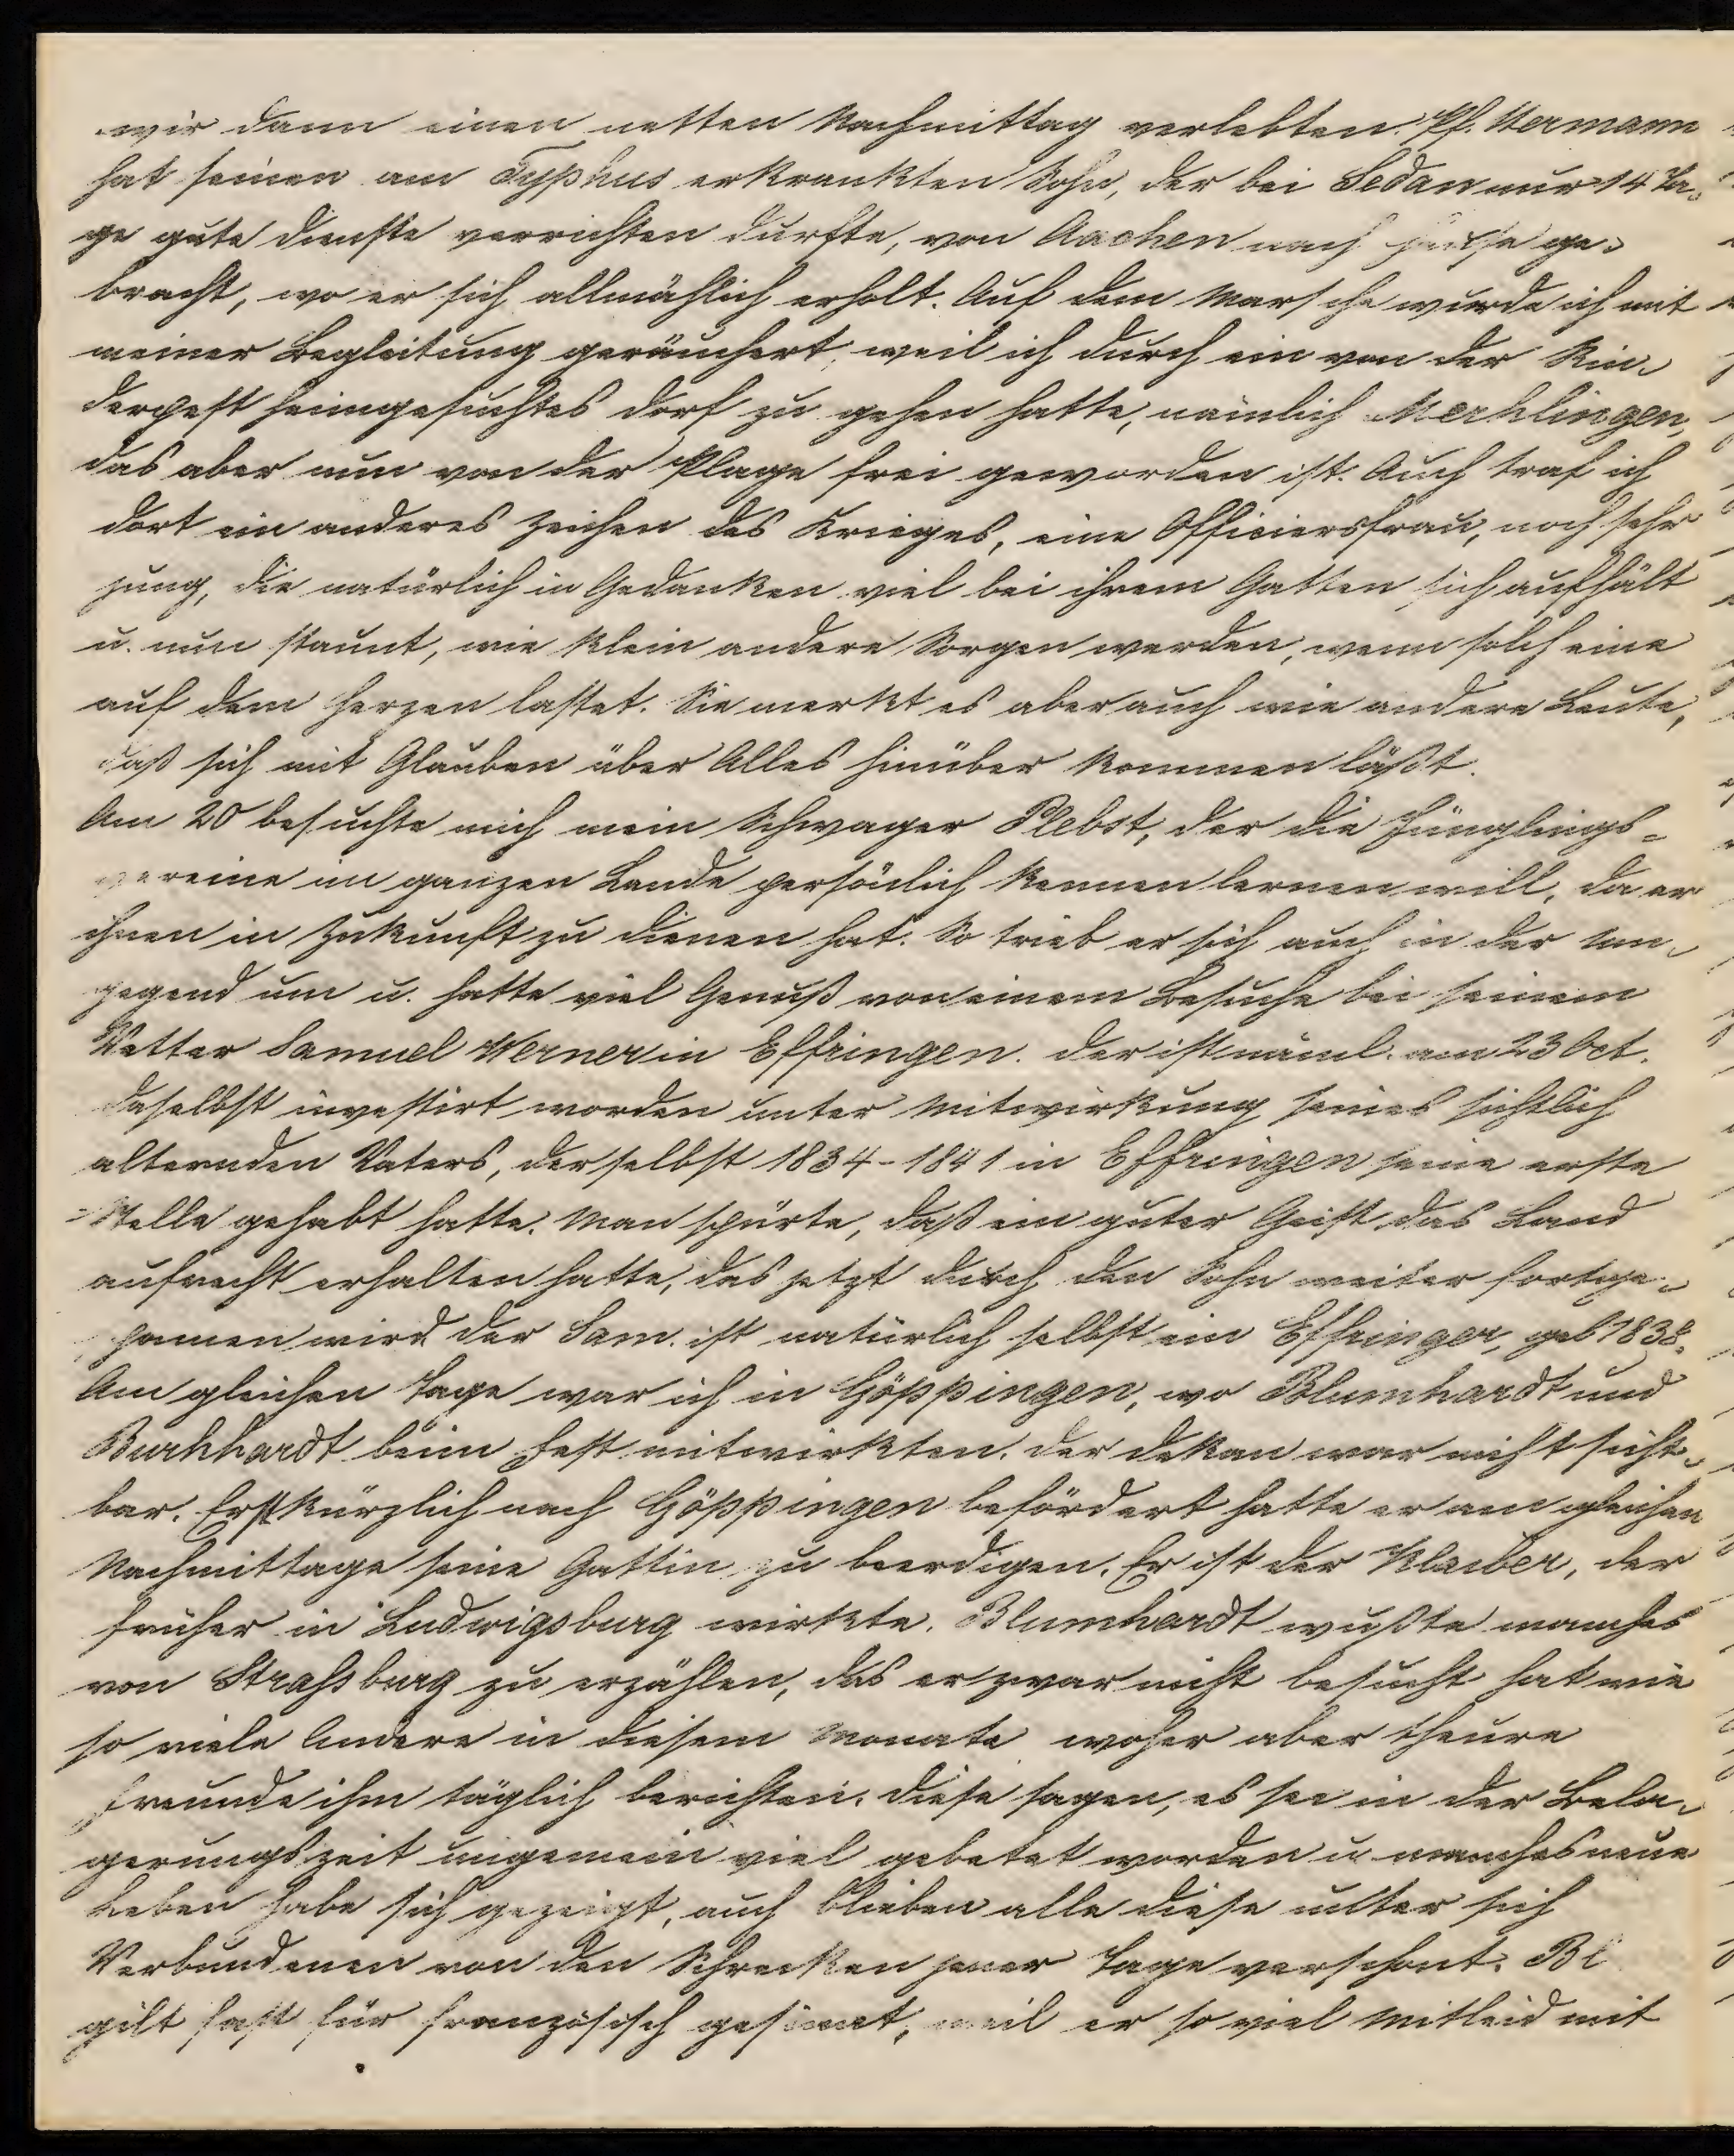 wir dann einen netten Nachmittag verlebten. Pf. Werner
hat seinen am Typhus erkrankten Sohn, der bei Sedan nur 14 Ta-
ge gute Dienste verrichten durfte, von Aachen nach Hause ge-
bracht, wo er sich allmählich erholt. Auf dem Marsche wurde ich mit
meiner Begleitung geräuchert, weil ich durch ein von der Rin-
derpest heimgesuchtes Dorf zu gehen hatte, nämlich Merklingen,
das aber nun von der Plage frei geworden ist. Auch traf ich
dort ein anderes Zeichen des Krieges, eine Officiersfrau, noch sehr
jung, die natürlich in Gedanken viel bei ihrem Gatten sich aufhält
u. nun staunt, wie klein andere Sorgen werden, wenn solch eine
auf dem Herzen lastet. Sie merkt es aber auch wie andere Leute,
daß sich mit Glauben über Alles hinüber kommen läßt.
Am 20 besuchte mich mein Schwager Plebst, der die Jünglings-
vereine im ganzen Lande persönlich kennen lernen will, da er
ihnen in Zukunft zu dienen hat. So trieb er sich auch in der Um-
gegend um u. hatte viel Genuß von einem Besuche bei seinem
Vetter Samuel Werner in Effringen. Der ist näml. am 23 Oct.
daselbst investirt worden unter Mitwirkung seines sichtlich
alternden Vaters, der selbst 1834-1841 in Effringen seine erste
Stelle gehabt hatte. Man spürte, daß ein guter Geist das Band
aufrecht erhalten hatte, das jetzt durch den Sohn weiter fortge-
sponnen wird. Der Sam. ist natürlich selbst ein Effringer, geb 1838.
Am gleichen Tage war ich in Göppingen, wo Blumhardt und
Burkhardt beim Fest mitwirkten. Der Dekan war nicht sicht-
bar. Erst kürzlich nach Göppingen befördert hatte er am gleichen
Nachmittage seine Gattin zu beerdigen. Er ist der Klaiber, der
früher in Ludwigsburg wirkte. Blumhardt wußte manches
von Straßburg zu erzählen, das er zwar nicht besucht hat wie
so viele Andere in diesem Monate woher aber theure
Freunde ihm täglich berichten. Diese sagen, es sei in der Bela-
gerungszeit ungemein viel gebetet worden u. manches neue
Leben habe sich gezeigt, auch blieben alle diese unter sich
Verbundenen von den Schrecken jener Tage verschont. Bl
gilt fast für französisch gesinnt, weil er so viel Mitleid mit